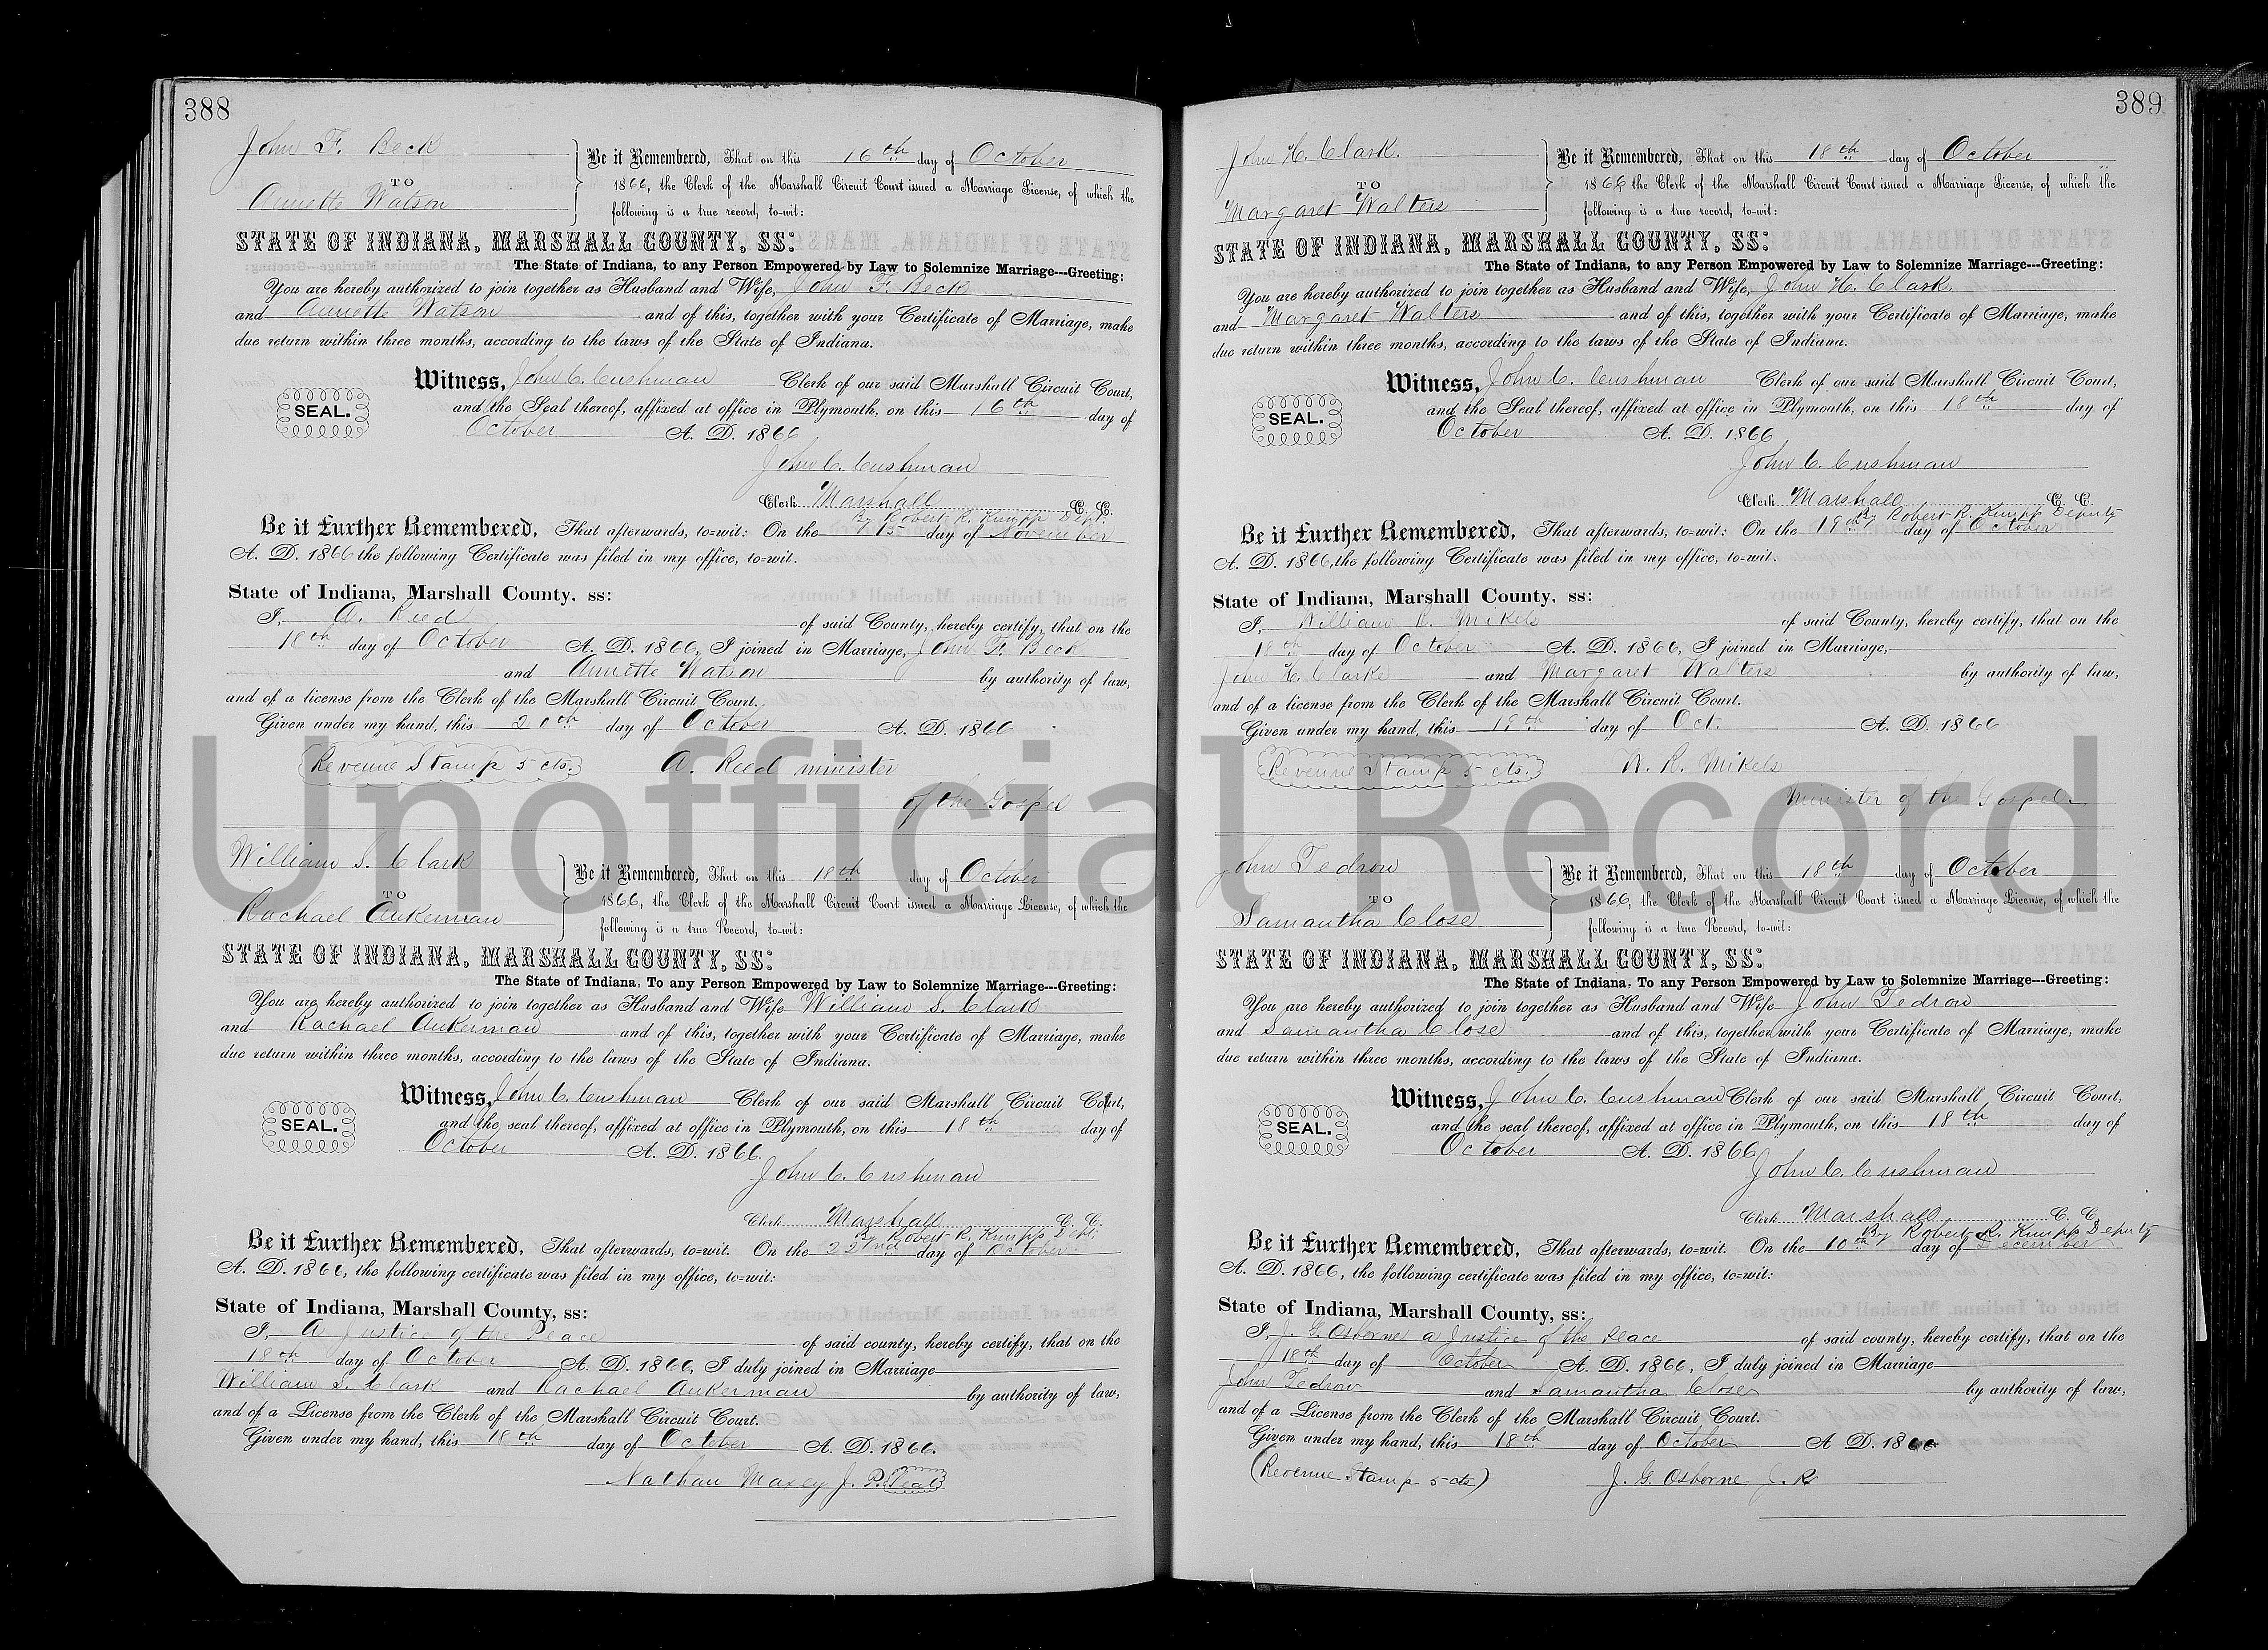 388
John F. Beck
TO
Annette Watson
Be it Remembered, That on this 16th day of October
1866, the Clerk of the Marshall Circuit Court issued a Marriage License, of which the
following is a true record, to-wit:
STATE OF INDIANA, MARSHALL COUNTY, SS:
The State of Indiana, to any Person Empowered by Law to Solemnize Marriage---Greeting:
You are hereby authorized to join together as Husband and Wife, John F. Beck
and Annette Watson and of this, together with your Certificate of Marriage, make
due return within three months, according to the laws of the State of Indiana.
Witness, John C. Cushman Clerk of our said Marshall Circuit Court,
SEAL.
and the Seal thereof, affixed at office in Plymouth, on this 16th day of
October A. D. 1866
John C. Cushman
Clerk Marshall C. C.
By Robert R. Kumpp Dept.
Be it Further Remembered, That afterwards, to=wit: On the 15 day of November
A. D. 1866 the following Certificate was filed in my office, to=wit.
State of Indiana, Marshall County, ss:
I, A. Reed of said County, hereby certify, that on the
18th day of October A. D. 1866, I joined in Marriage, John F. Beck
and Annette Watson by authority of law,
and of a license from the Clerk of the Marshall Circuit Court.
Given under my hand, this 20th day of October A. D. 1866
Revenue Stamp 5 cts. A. Reed minister
of the Gospel
William S. Clark
TO
Rachael Aukerman
Be it Remembered, That on this 18th day of October
1866, the Clerk of the Marshall Circuit Court issued a Marriage License, of which the
following is a true Record, to-wit:
STATE OF INDIANA, MARSHALL COUNTY, SS:
The State of Indiana, To any Person Empowered by Law to Solemnize Marriage---Greeting:
You are hereby authorized to join together as Husband and Wife William S. Clark
and Rachael Aukerman and of this, together with your Certificate of Marriage, make
due return within three months, according to the laws of the State of Indiana.
Witness, John C. Cushman Clerk of our said Marshall Circuit Court,
SEAL.
and the seal thereof, affixed at office in Plymouth, on this 18th day of
October A. D. 1866.
John C. Cushman
Clerk Marshall C. C.
By Robert R. Kumpp Dept.
Be it Further Remembered, That afterwards, to=wit. On the 22nd day of October
A. D. 1866, the following certificate was filed in my office, to=wit:
State of Indiana, Marshall County, ss:
I, A Justice of the Peace of said county, hereby certify, that on the
18th day of October A. D. 1866, I duly joined in Marriage
William S. Clark and Rachael Aukerman by authority of law,
and of a License from the Clerk of the Marshall Circuit Court.
Given under my hand, this 18th day of October A. D. 1866.
Nathan Maxey J. P. Seal
389
John H. Clark.
TO
Margaret Walters
Be it Remembered, That on this 18th day of October
1866 the Clerk of the Marshall Circuit Court issued a Marriage License, of which the
following is a true record, to-wit:
STATE OF INDIANA, MARSHALL COUNTY, SS:
The State of Indiana, to any Person Empowered by Law to Solemnize Marriage---Greeting:
You are hereby authorized to join together as Husband and Wife, John H. Clark
and Margaret Walters and of this, together with your Certificate of Marriage, make
due return within three months, according to the laws of the State of Indiana.
Witness, John C. Cushman Clerk of our said Marshall Circuit Court,
SEAL.
and the Seal thereof, affixed at office in Plymouth, on this 18th day of
October A. D. 1866
John C. Cushman
Clerk Marshall C. C.
By Robert R. Kumpp Deputy
Be it Further Remembered, That afterwards, to=wit: On the 19th day of October
A. D. 1866, the following Certificate was filed in my office, to=wit.
State of Indiana, Marshall County, ss:
I, William R. Mikels of said County, hereby certify, that on the
18th day of October A. D. 1866, I joined in Marriage,
John H. Clarke and Margaret Walters by authority of law,
and of a license from the Clerk of the Marshall Circuit Court.
Given under my hand, this 19th day of Oct. A. D. 1866
Revenue Stamp 5 cts. W. R. Mikels
Minister of the Gospel
John Tedrow
TO
Samantha Close
Be it Remembered, That on this 18th day of October
1866, the Clerk of the Marshall Circuit Court issued a Marriage License, of which the
following is a true Record, to-wit:
STATE OF INDIANA, MARSHALL COUNTY, SS:
The State of Indiana, To any Person Empowered by Law to Solemnize Marriage---Greeting:
You are hereby authorized to join together as Husband and Wife John Tedrow
and Samantha Close and of this, together with your Certificate of Marriage, make
due return within three months, according to the laws of the State of Indiana.
Witness, John C. Cushman Clerk of our said Marshall Circuit Court,
SEAL.
and the seal thereof, affixed at office in Plymouth, on this 18th day of
October A. D. 1866
John C. Cushman
Clerk Marshall C. C.
By Robert R. Kumpp Deputy
Be it Further Remembered, That afterwards, to=wit. On the 10th day of December
A. D. 1866, the following certificate was filed in my office, to=wit:
State of Indiana, Marshall County, ss:
I, J. G. Osborne a Justice of the Peace of said county, hereby certify, that on the
18th day of October A. D. 1866, I duly joined in Marriage
John Tedrow and Samantha Close by authority of law,
and of a License from the Clerk of the Marshall Circuit Court.
Given under my hand, this 18th day of October A D. 1866
(Revenue Stamp 5 cts) J. G. Osborne J. P.
Unofficial Record